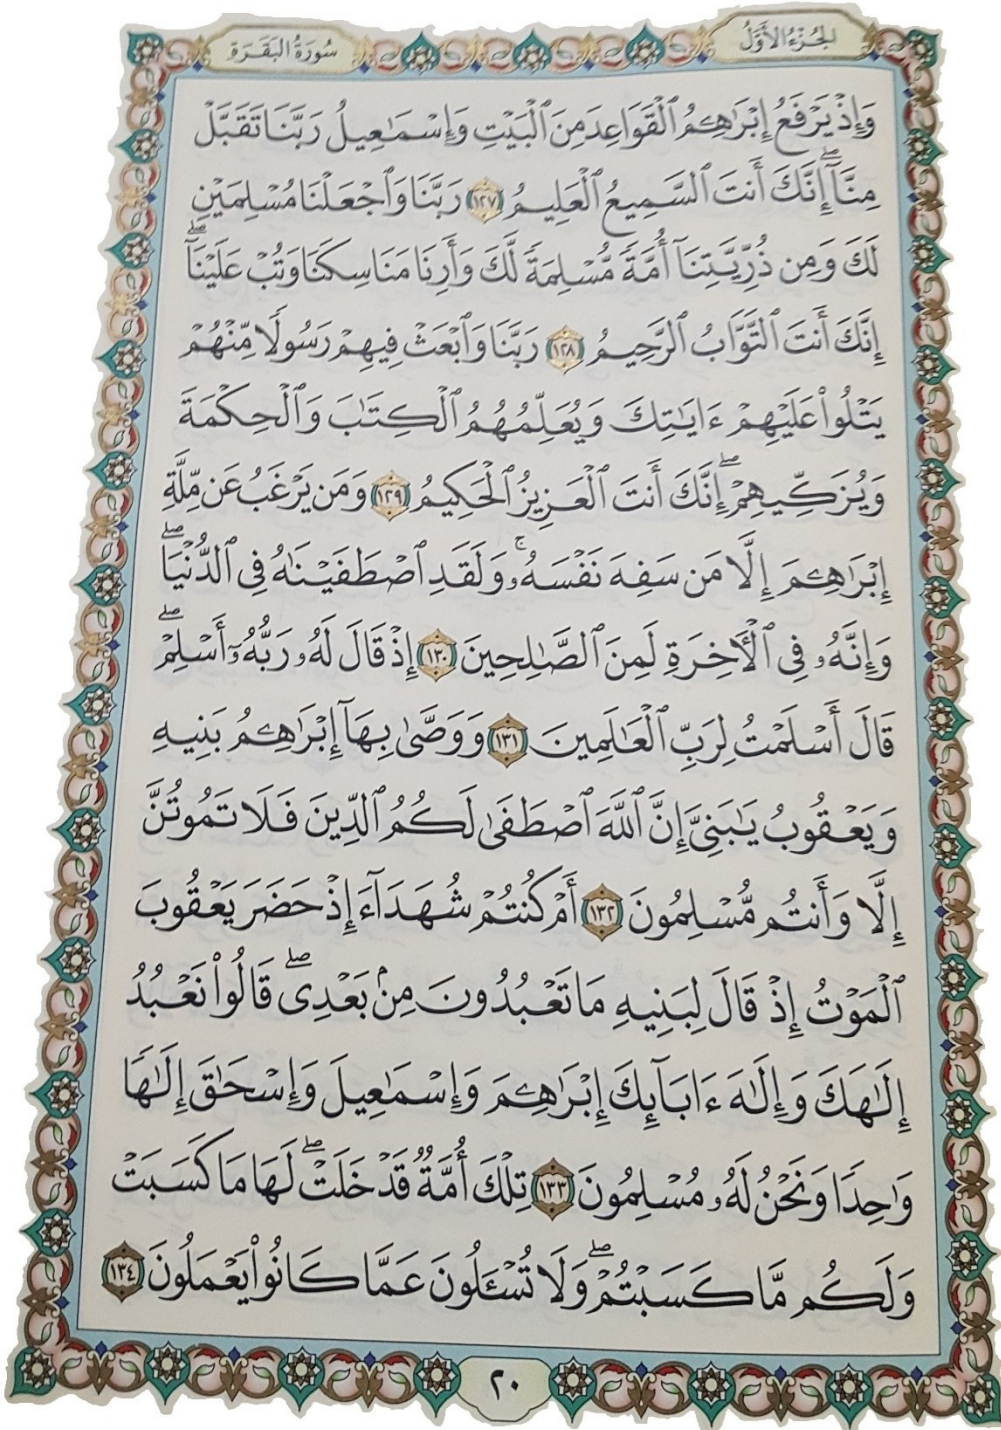 الجزء الأول
سورة البقرة
وَإِذْ يَرْفَعُ إِبْرَٰهِـۧمُ ٱلْقَوَاعِدَ مِنَ ٱلْبَيْتِ وَإِسْمَـٰعِيلُ رَبَّنَا تَقَبَّلْ
مِنَّآ ۖ إِنَّكَ أَنتَ ٱلسَّمِيعُ ٱلْعَلِيمُ ١٢٧ رَبَّنَا وَٱجْعَلْنَا مُسْلِمَيْنِ
لَكَ وَمِن ذُرِّيَّتِنَآ أُمَّةً مُّسْلِمَةً لَّكَ وَأَرِنَا مَنَاسِكَنَا وَتُبْ عَلَيْنَآ ۖ
إِنَّكَ أَنتَ ٱلتَّوَّابُ ٱلرَّحِيمُ ١٢٨ رَبَّنَا وَٱبْعَثْ فِيهِمْ رَسُولًا مِّنْهُمْ
يَتْلُوا۟ عَلَيْهِمْ ءَايَـٰتِكَ وَيُعَلِّمُهُمُ ٱلْكِتَـٰبَ وَٱلْحِكْمَةَ
وَيُزَكِّيهِمْ ۖ إِنَّكَ أَنتَ ٱلْعَزِيزُ ٱلْحَكِيمُ ١٢٩ وَمَن يَرْغَبُ عَن مِّلَّةِ
إِبْرَٰهِـۧمَ إِلَّا مَن سَفِهَ نَفْسَهُۥ ۚ وَلَقَدِ ٱصْطَفَيْنَـٰهُ فِى ٱلدُّنْيَا ۖ
وَإِنَّهُۥ فِى ٱلْـَٔاخِرَةِ لَمِنَ ٱلصَّـٰلِحِينَ ١٣٠ إِذْ قَالَ لَهُۥ رَبُّهُۥٓ أَسْلِمْ ۖ
قَالَ أَسْلَمْتُ لِرَبِّ ٱلْعَـٰلَمِينَ ١٣١ وَوَصَّىٰ بِهَآ إِبْرَٰهِـۧمُ بَنِيهِ
وَيَعْقُوبُ يَـٰبَنِىَّ إِنَّ ٱللَّهَ ٱصْطَفَىٰ لَكُمُ ٱلدِّينَ فَلَا تَمُوتُنَّ
إِلَّا وَأَنتُم مُّسْلِمُونَ ١٣٢ أَمْ كُنتُمْ شُهَدَآءَ إِذْ حَضَرَ يَعْقُوبَ
ٱلْمَوْتُ إِذْ قَالَ لِبَنِيهِ مَا تَعْبُدُونَ مِنۢ بَعْدِى ۖ قَالُوا۟ نَعْبُدُ
إِلَـٰهَكَ وَإِلَـٰهَ ءَابَآئِكَ إِبْرَٰهِـۧمَ وَإِسْمَـٰعِيلَ وَإِسْحَـٰقَ إِلَـٰهًا
وَٰحِدًا وَنَحْنُ لَهُۥ مُسْلِمُونَ ١٣٣ تِلْكَ أُمَّةٌ قَدْ خَلَتْ ۖ لَهَا مَا كَسَبَتْ
وَلَكُم مَّا كَسَبْتُمْ ۖ وَلَا تُسْـَٔلُونَ عَمَّا كَانُوا۟ يَعْمَلُونَ ١٣٤
٢٠